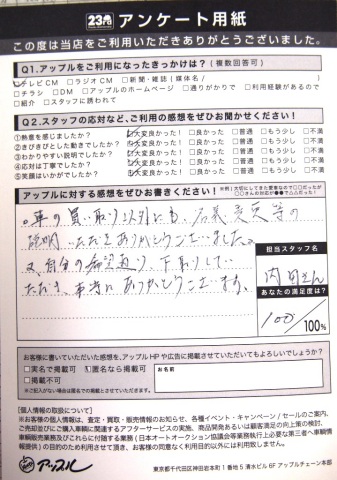 23th アンケート用紙
この度は当店をご利用いただきありがとうございました。
Q1.アップルをご利用になったきっかけは？(複数回答可)
☑テレビCM □ラジオCM □新聞・雑誌(媒体名/ )
□チラシ □DM □アップルのホームページ □通りがかりで □利用経験があるので
□紹介 □スタッフに誘われて
Q2.スタッフの応対など、ご利用の感想をぜひお聞かせください！
①熱意を感じましたか？ ☑大変良かった！ □良かった □普通 □もう少し □不満
②きびきびとした動きでしたか？ ☑大変良かった！ □良かった □普通 □もう少し □不満
③わかりやすい説明でしたか？ ☑大変良かった！ □良かった □普通 □もう少し □不満
④応対は丁寧でしたか？ ☑大変良かった！ □良かった □普通 □もう少し □不満
⑤笑顔はいかがでしたか？ ☑大変良かった！ □良かった □普通 □もう少し □不満
アップルに対する感想をぜひお書きください！
。車の買い取り以外にも、名義変更等の
説明いただきありがとうございました。
又、自分の希望通り、下取りしてい
ただき、本当にありがとうございます。
担当スタッフ名
内田さん
あなたの満足度は？
100/100%
お客様に書いていただいた感想を、アップルHPや広告に掲載させていただいてもよろしいでしょうか？
□実名で掲載可 ☑匿名なら掲載可
□掲載不可
※ご記入がない場合は匿名での掲載とさせていただきます。
お名前
[個人情報の取扱について]
※お客様の個人情報は、査定・買取・販売情報のお知らせ、各種イベント・キャンペーン/セールのご案内、
ご売却並びにご購入車輌に関連するアフターサービスの実施、商品開発あるいは顧客満足の向上策の検討、
車輌販売業務及びこれらに付随する業務(日本オートオークション協議会等業務執行上必要な第三者へ車輌情
報提供)の目的のため利用させて頂き、お客様の同意なく利用目的以外には利用致しません。
アップル
東京都千代田区神田岩本町1番地5 清水ビル6F アップルチェーン本部